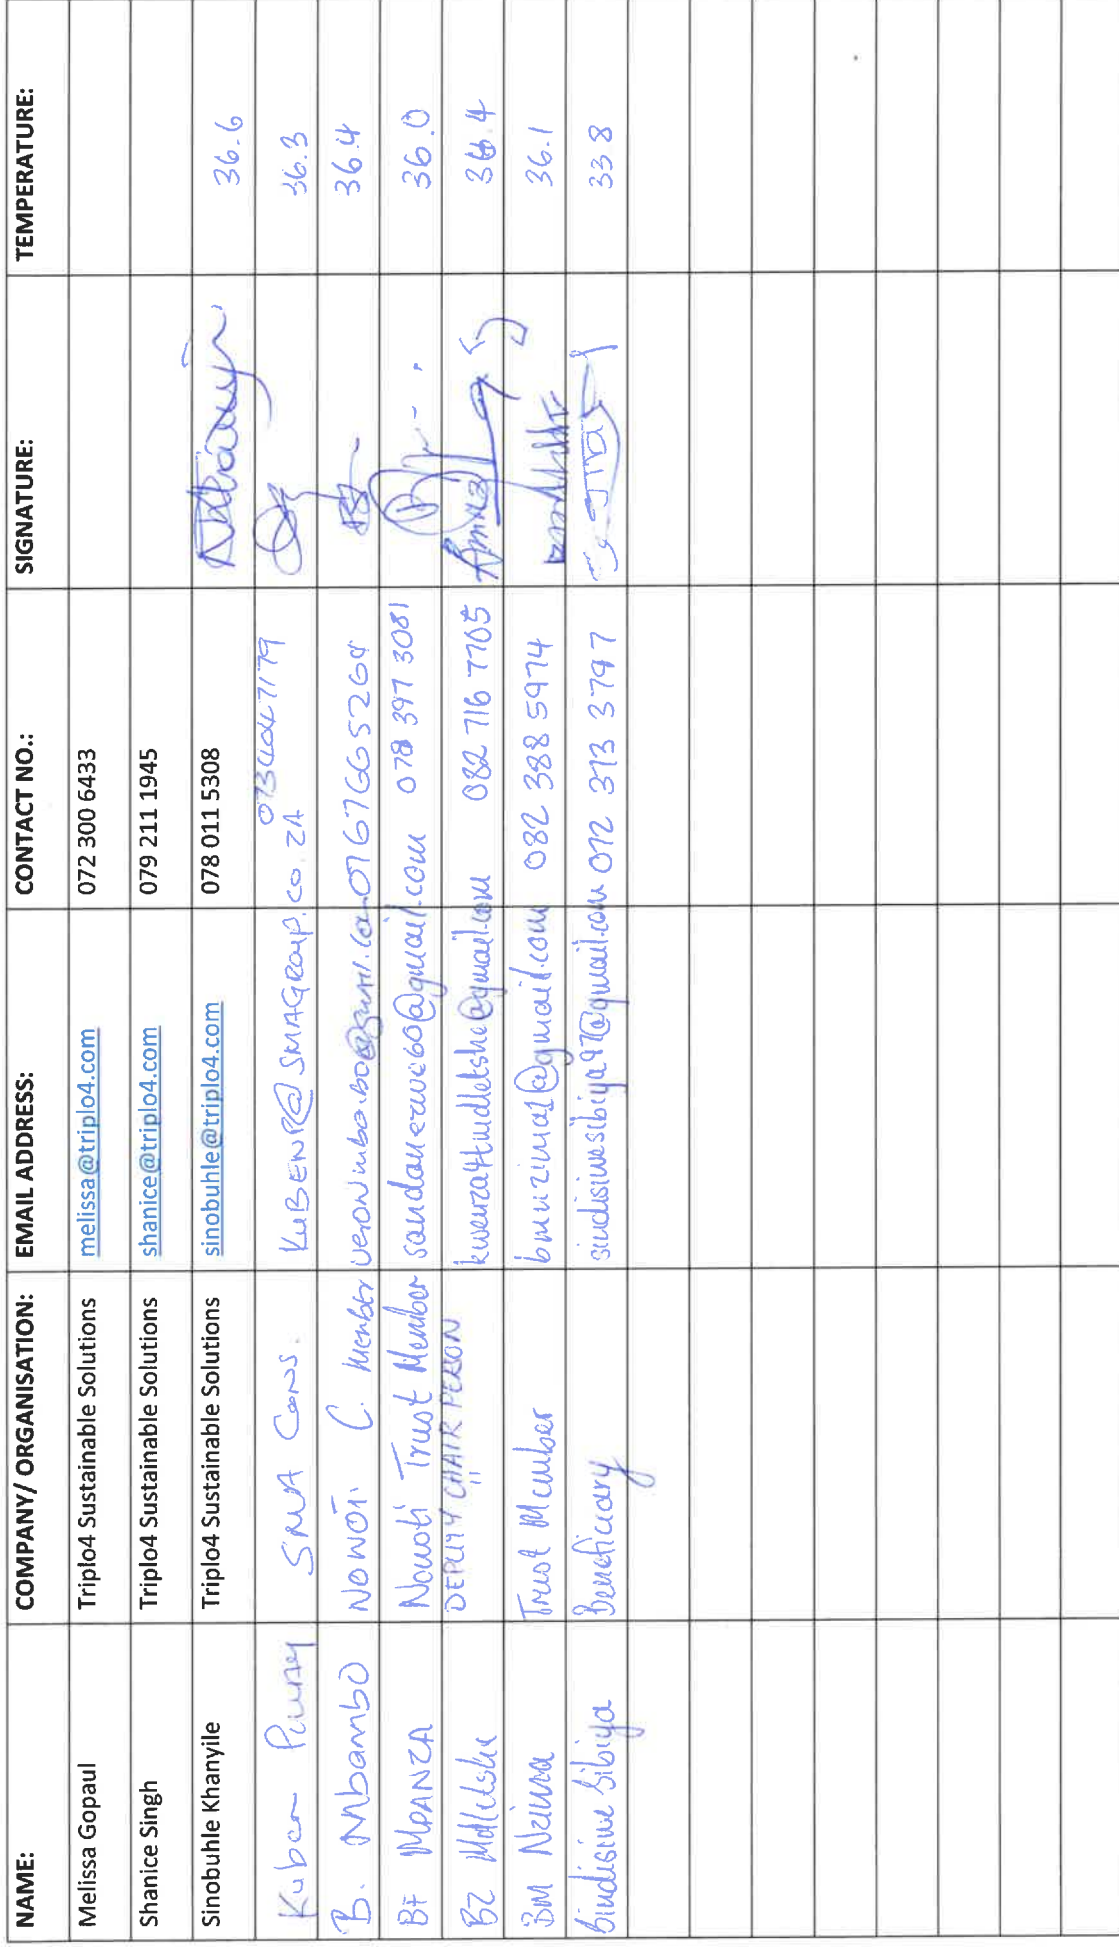 NAME: COMPANY/ ORGANISATION: EMAIL ADDRESS: CONTACT NO.: SIGNATURE: TEMPERATURE:
Melissa Gopaul Triplo4 Sustainable Solutions melissa@triplo4.com 072 300 6433
Shanice Singh Triplo4 Sustainable Solutions shanice@triplo4.com 079 211 1945
Sinobuhle Khanyile Triplo4 Sustainable Solutions sinobuhle@triplo4.com 078 011 5308 36.6
Kuben SMA Cons. KUBENP@SMAGROUP.CO.ZA 36.3
B. Mbambo NOWOTI. C. Member 0767665264 36.4
BF MDANZA Nowoti Trust Member sandanezwe60@gmail.com 078 397 3081 36.0
BZ Mdletshe DEPUTY CHAIR PERSON 082 716 7705 36.4
BM Nzima Trust Member bmnzima1@gmail.com 082 388 5974 36.1
Sindisiwe Sibiya Beneficiary sindisiwesibiya97@gmail.com 072 313 3797 33 8